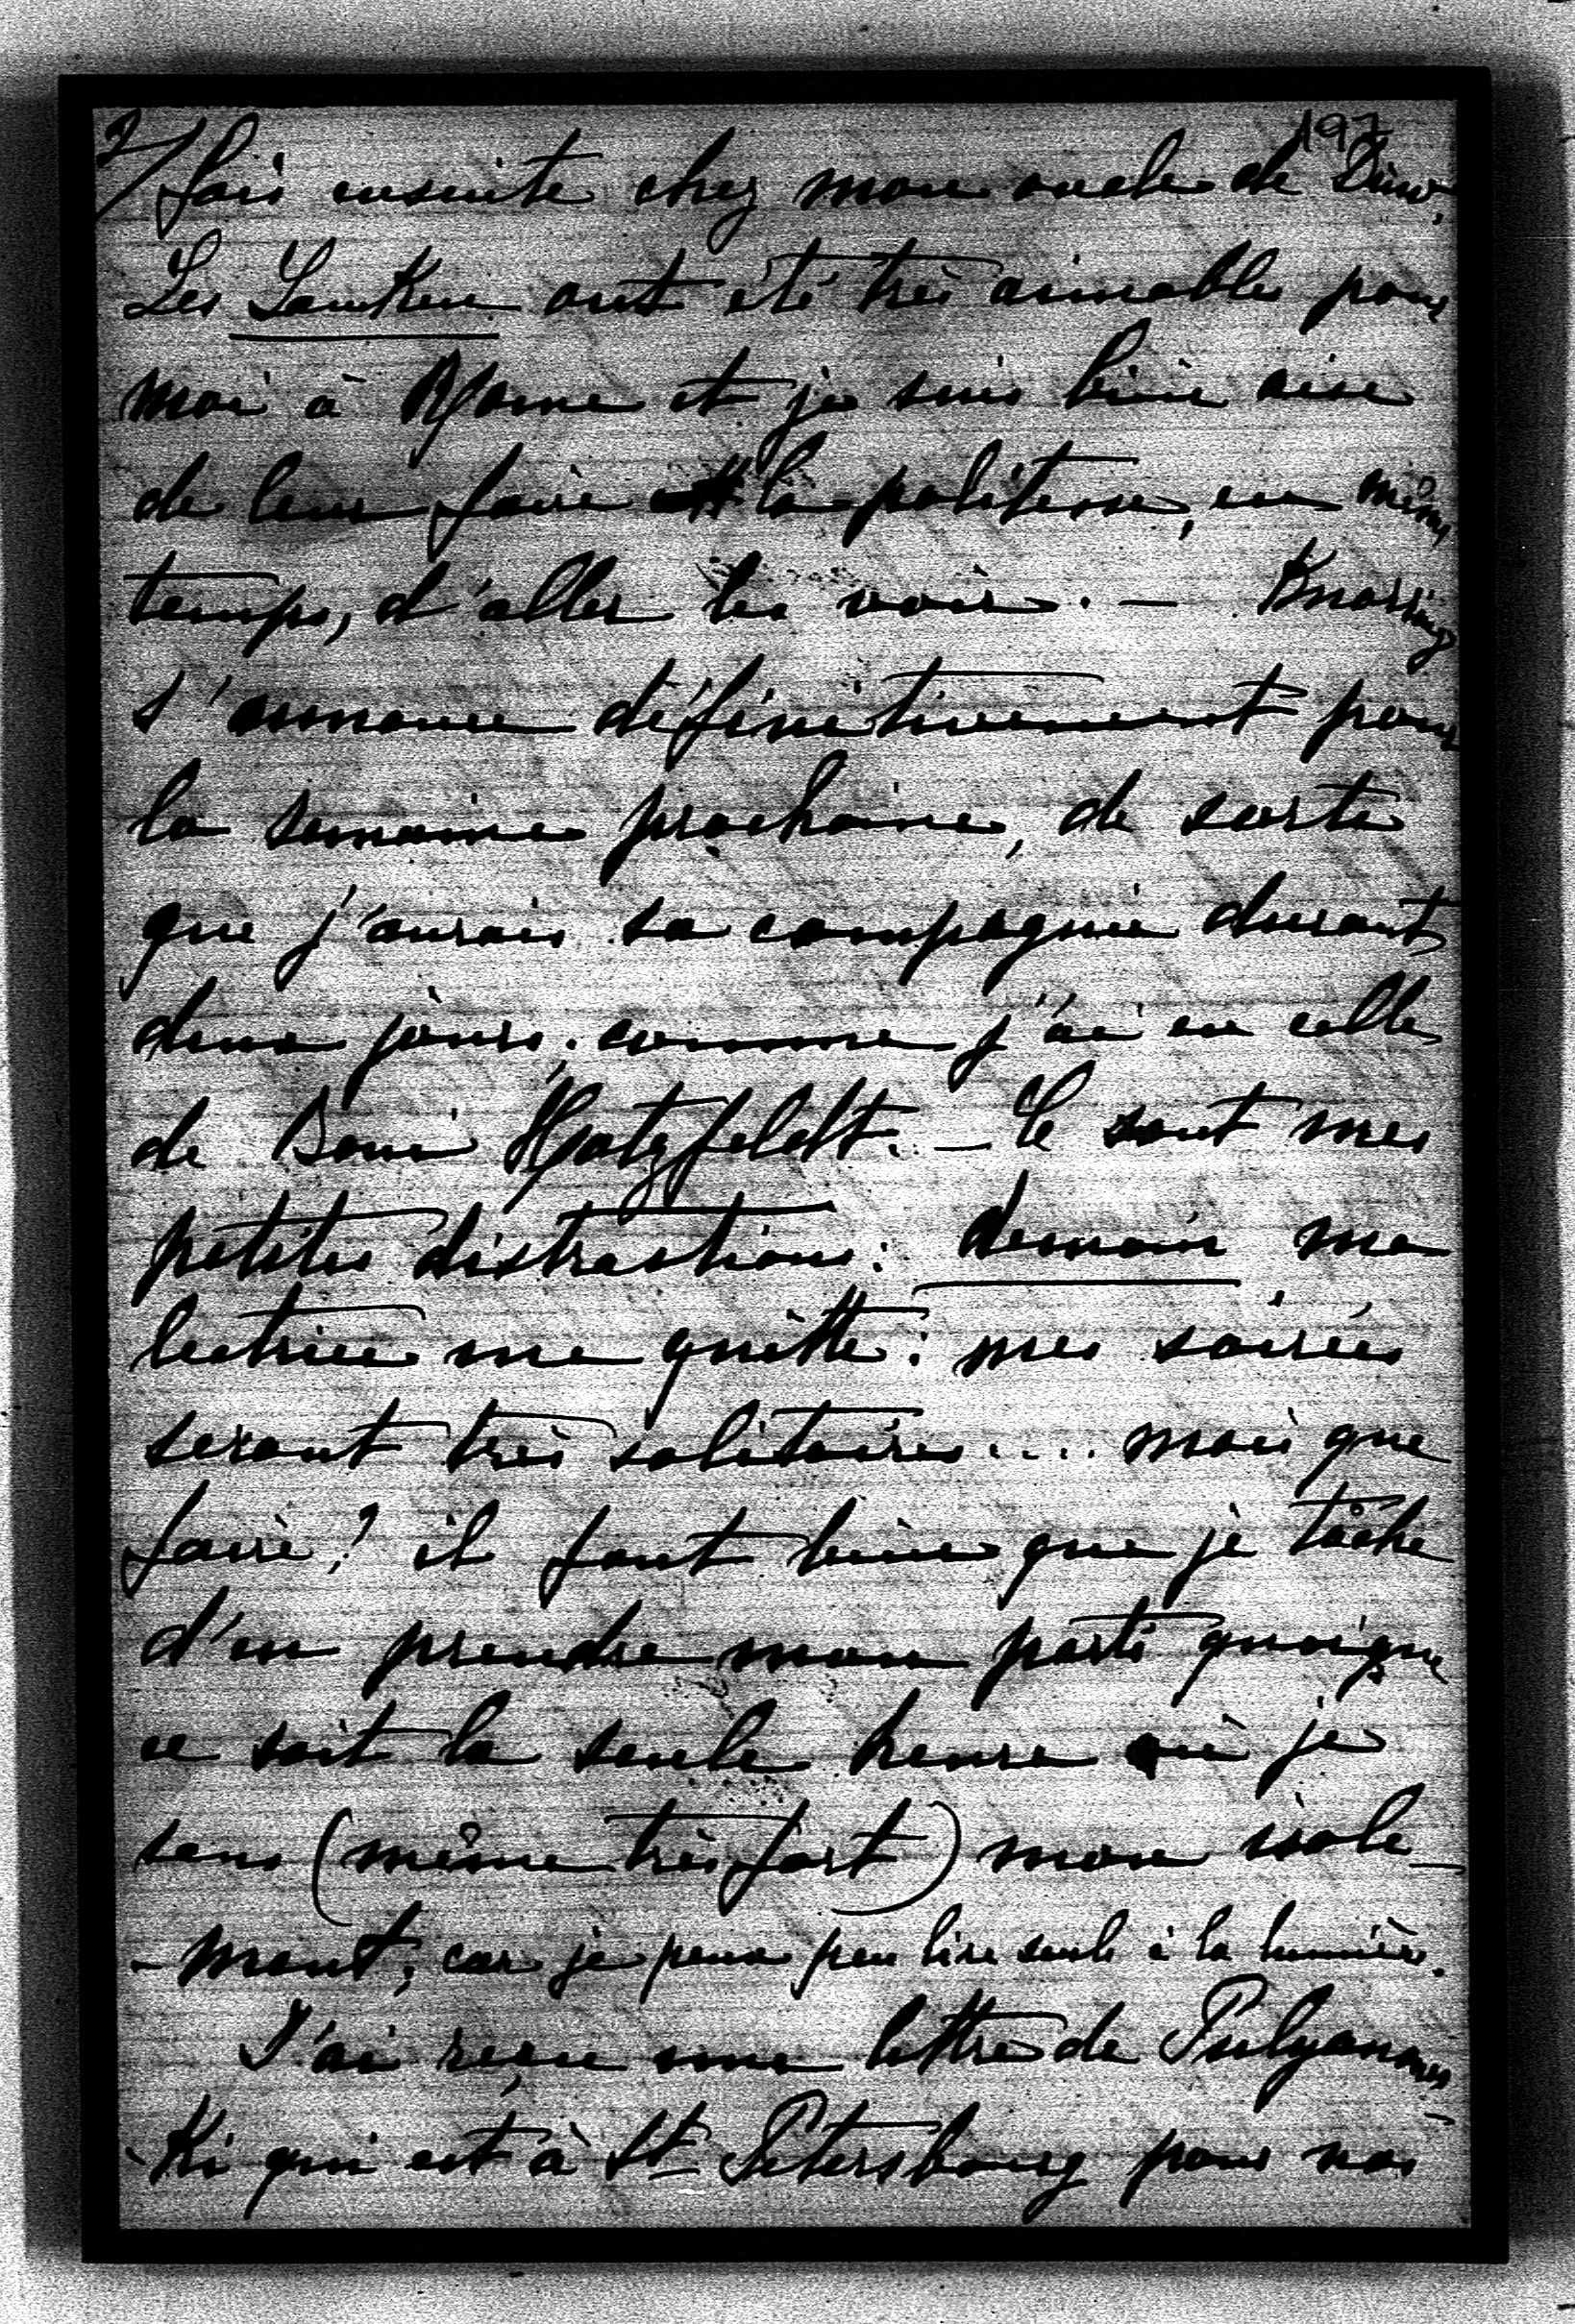 2/ 197
fois ensuite chez mon oncle de
Les ont été très aimables pour
moi à Rome et je suis bien aise
de leur faire la politesse, en même
temps, d'aller les voir. — Knorring
s'annonce définitivement pour
la semaine prochaine, de sorte
que j'aurais sa compagnie durant
deux jours, comme j'ai eu celle
de Boni Hatzfeldt. — Ce sont mes
petites distractions: demain ma
lectrice me quitte: mes soirées
seront très solitaires.... mais que
faire? il faut bien que je tâche
d'en prendre mon parti quoique
ce soit la seule heure où je
sens (même très fort) mon isole-
-ment, car je peux peu lire seule à la lumière.
J'ai reçu une lettre de
-ki qui est à St Pétersbourg pour nos